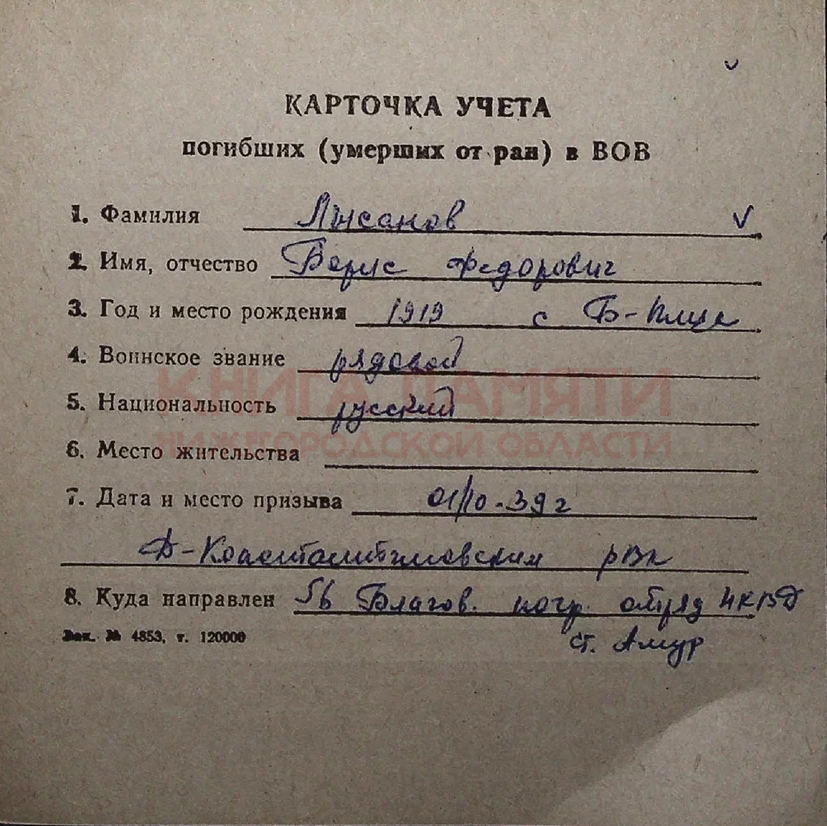 КАРТОЧКА УЧЕТА
погибших (умерших от ран) в ВОВ
1. Фамилия Лысанов
2. Имя, отчество Борис Федорович
3. Год и место рождения 1919 с
4. Воинское звание рядовой
5. Национальность русский
КНИГА ПАМЯТИ
НИЖЕГОРОДСКОЙ ОБЛАСТИ
6. Место жительства
7. Дата и место призыва 01/10-39г
Д-Константиновским РВК
8. Куда направлен 56 Благов. погр. отряд НКВД
ст. Амур
Зак. № 4853, т. 120000